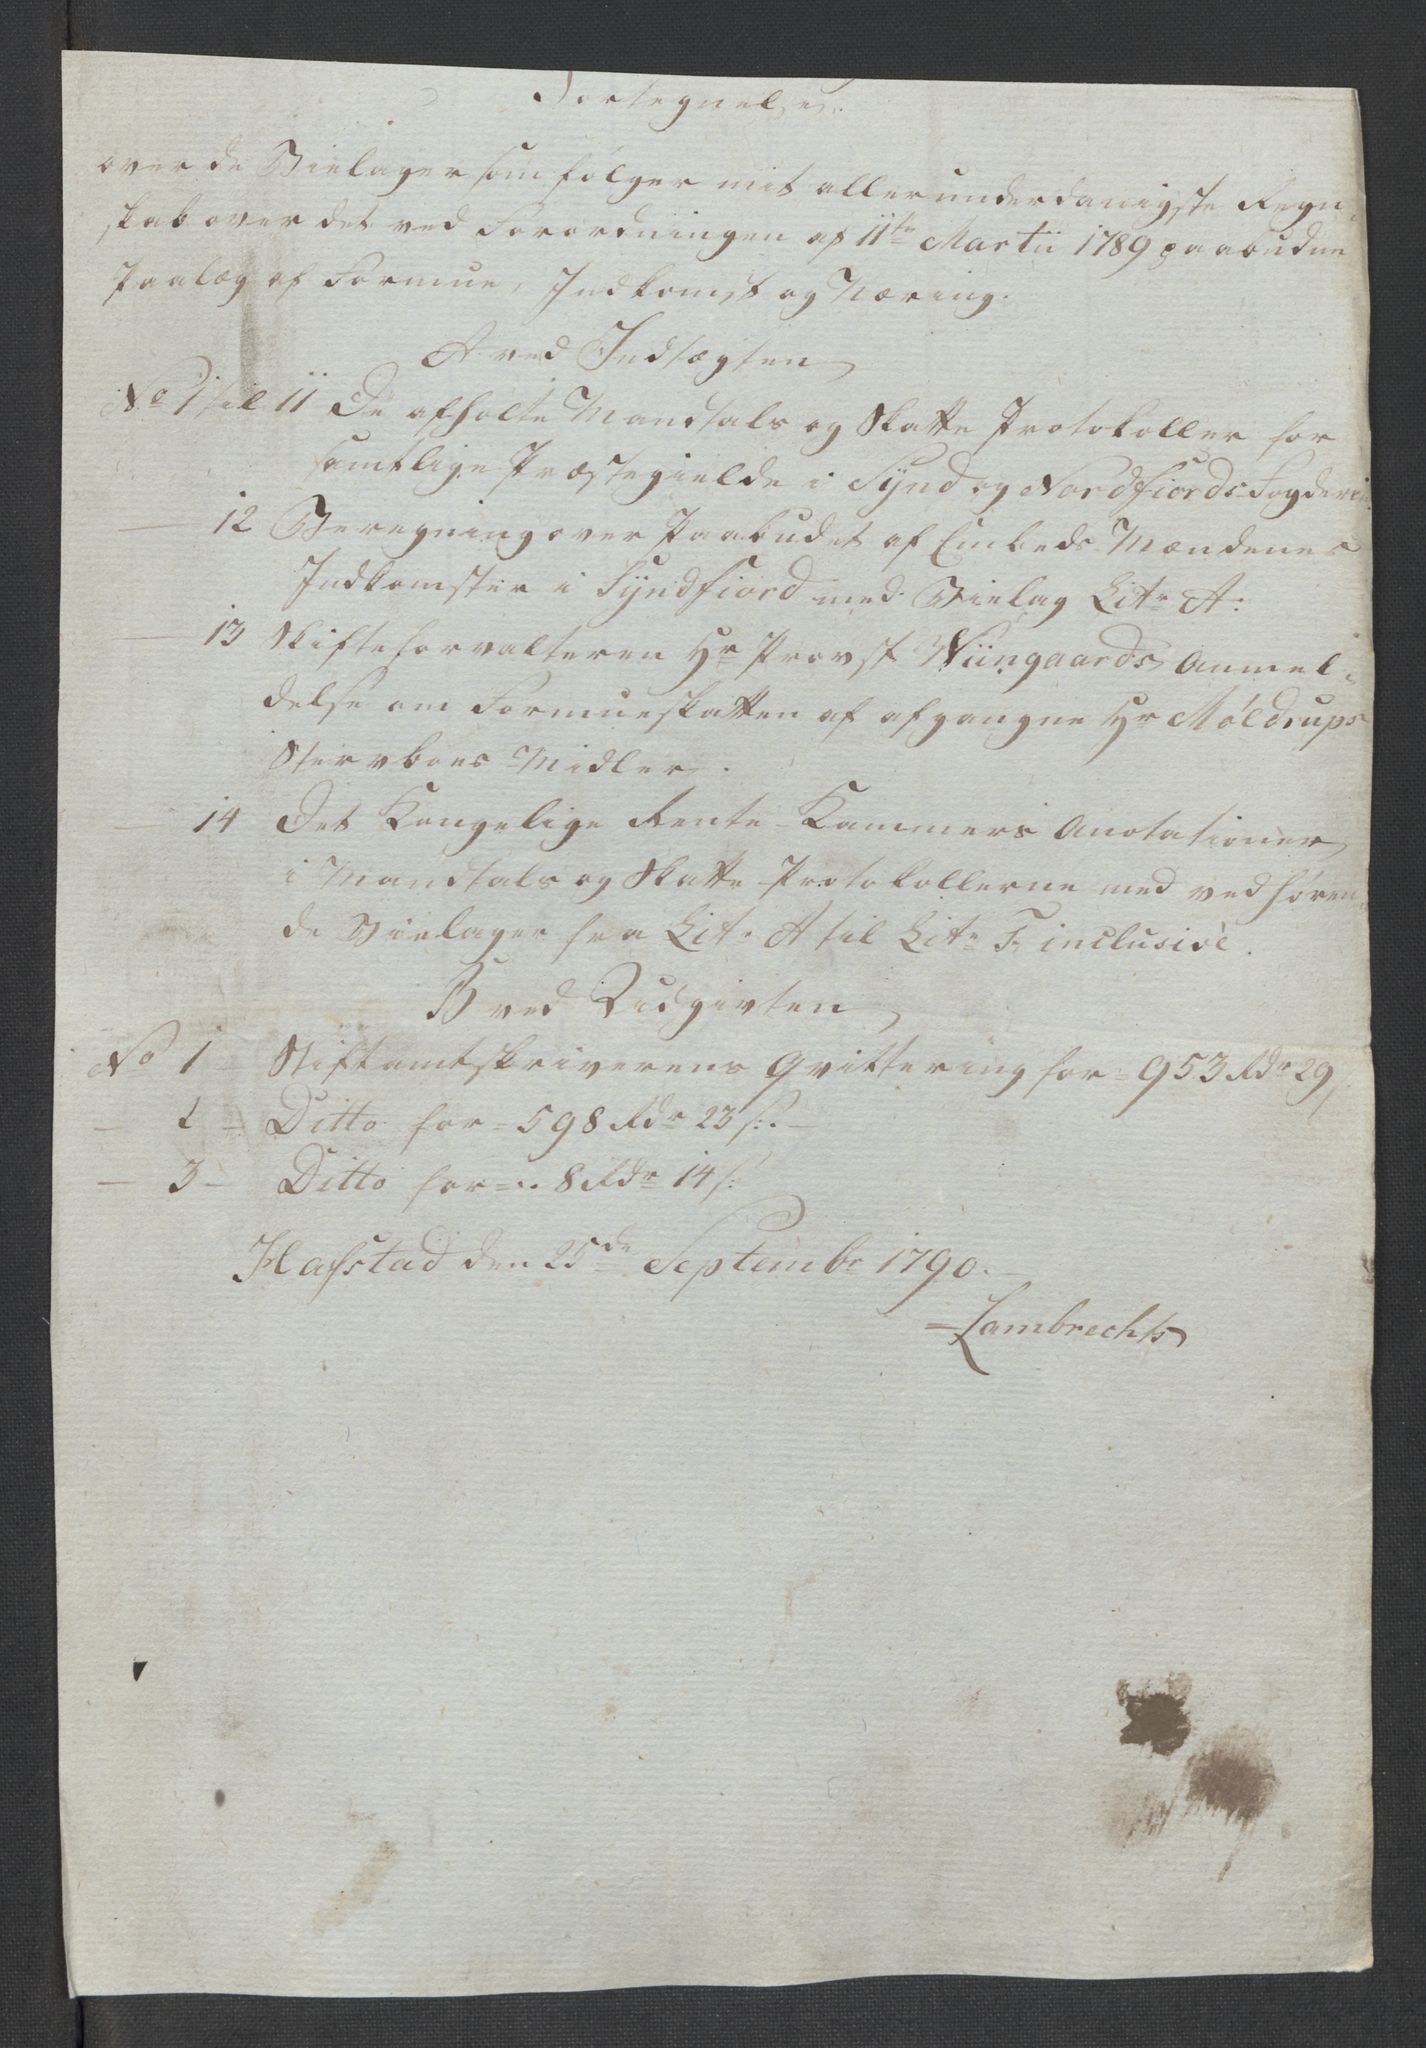 Fortegnelse
over de Bielager som følger mit allerunderdanigste Regn-
skab over det ved Forordningen af 11te Martii 1789 paabudne
Paalæg af Formue, Indkomst og Næring.
A ved Indtægten
No 1 til 11 De afholte Mandtals og Skatte Protokoller for
samtlige Præstegielde i Synd og Nordfiords Fogderie
— 12 Beregning over Paabudet af Embeds Mændenes
Indkomster i Syndfiord med Bielag Litr A:
— 13 Skifteforvalteren Hr Provst Wiingaards Anmel-
delse om Formueskatten af afgangne Hr Møldrups
Stervboes Midler.
— 14 Det Kongelige Rente-Kammers Anotationer
i Mandtals og Skatte Protokollerne med vedhøren-
de Bielager fra Litr A til Litr F inclusive.
B ved Udgivten
No 1 Stiftamtskriverens Qvittering for = 953 Rdr 29
— 2 — Ditto for = 598 Rdr 23 s:
— 3 — Ditto for = 8 Rdr 14 s:
Hafstad den 25de Septembr 1790.
Lambrechts